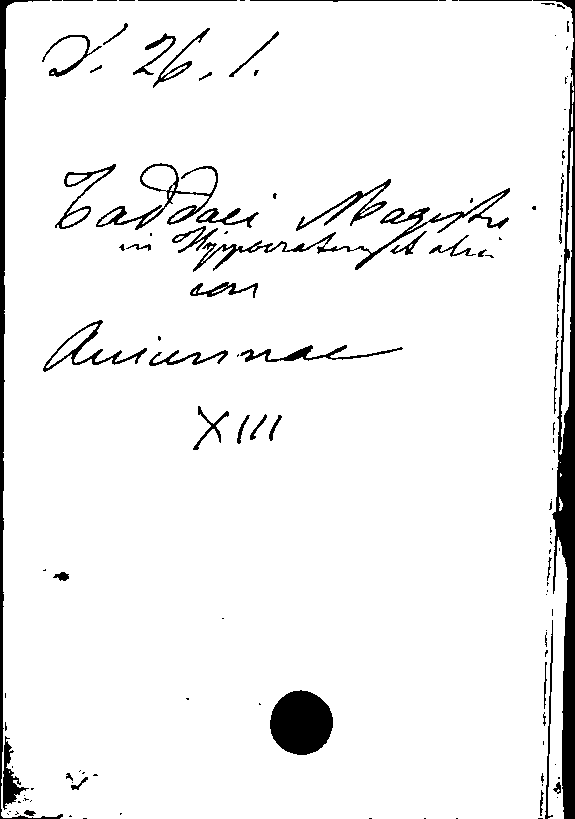 X. 26. 1.
Taddaei Magistri
in Hyppocratem et alia
com
Auicennae
XIII